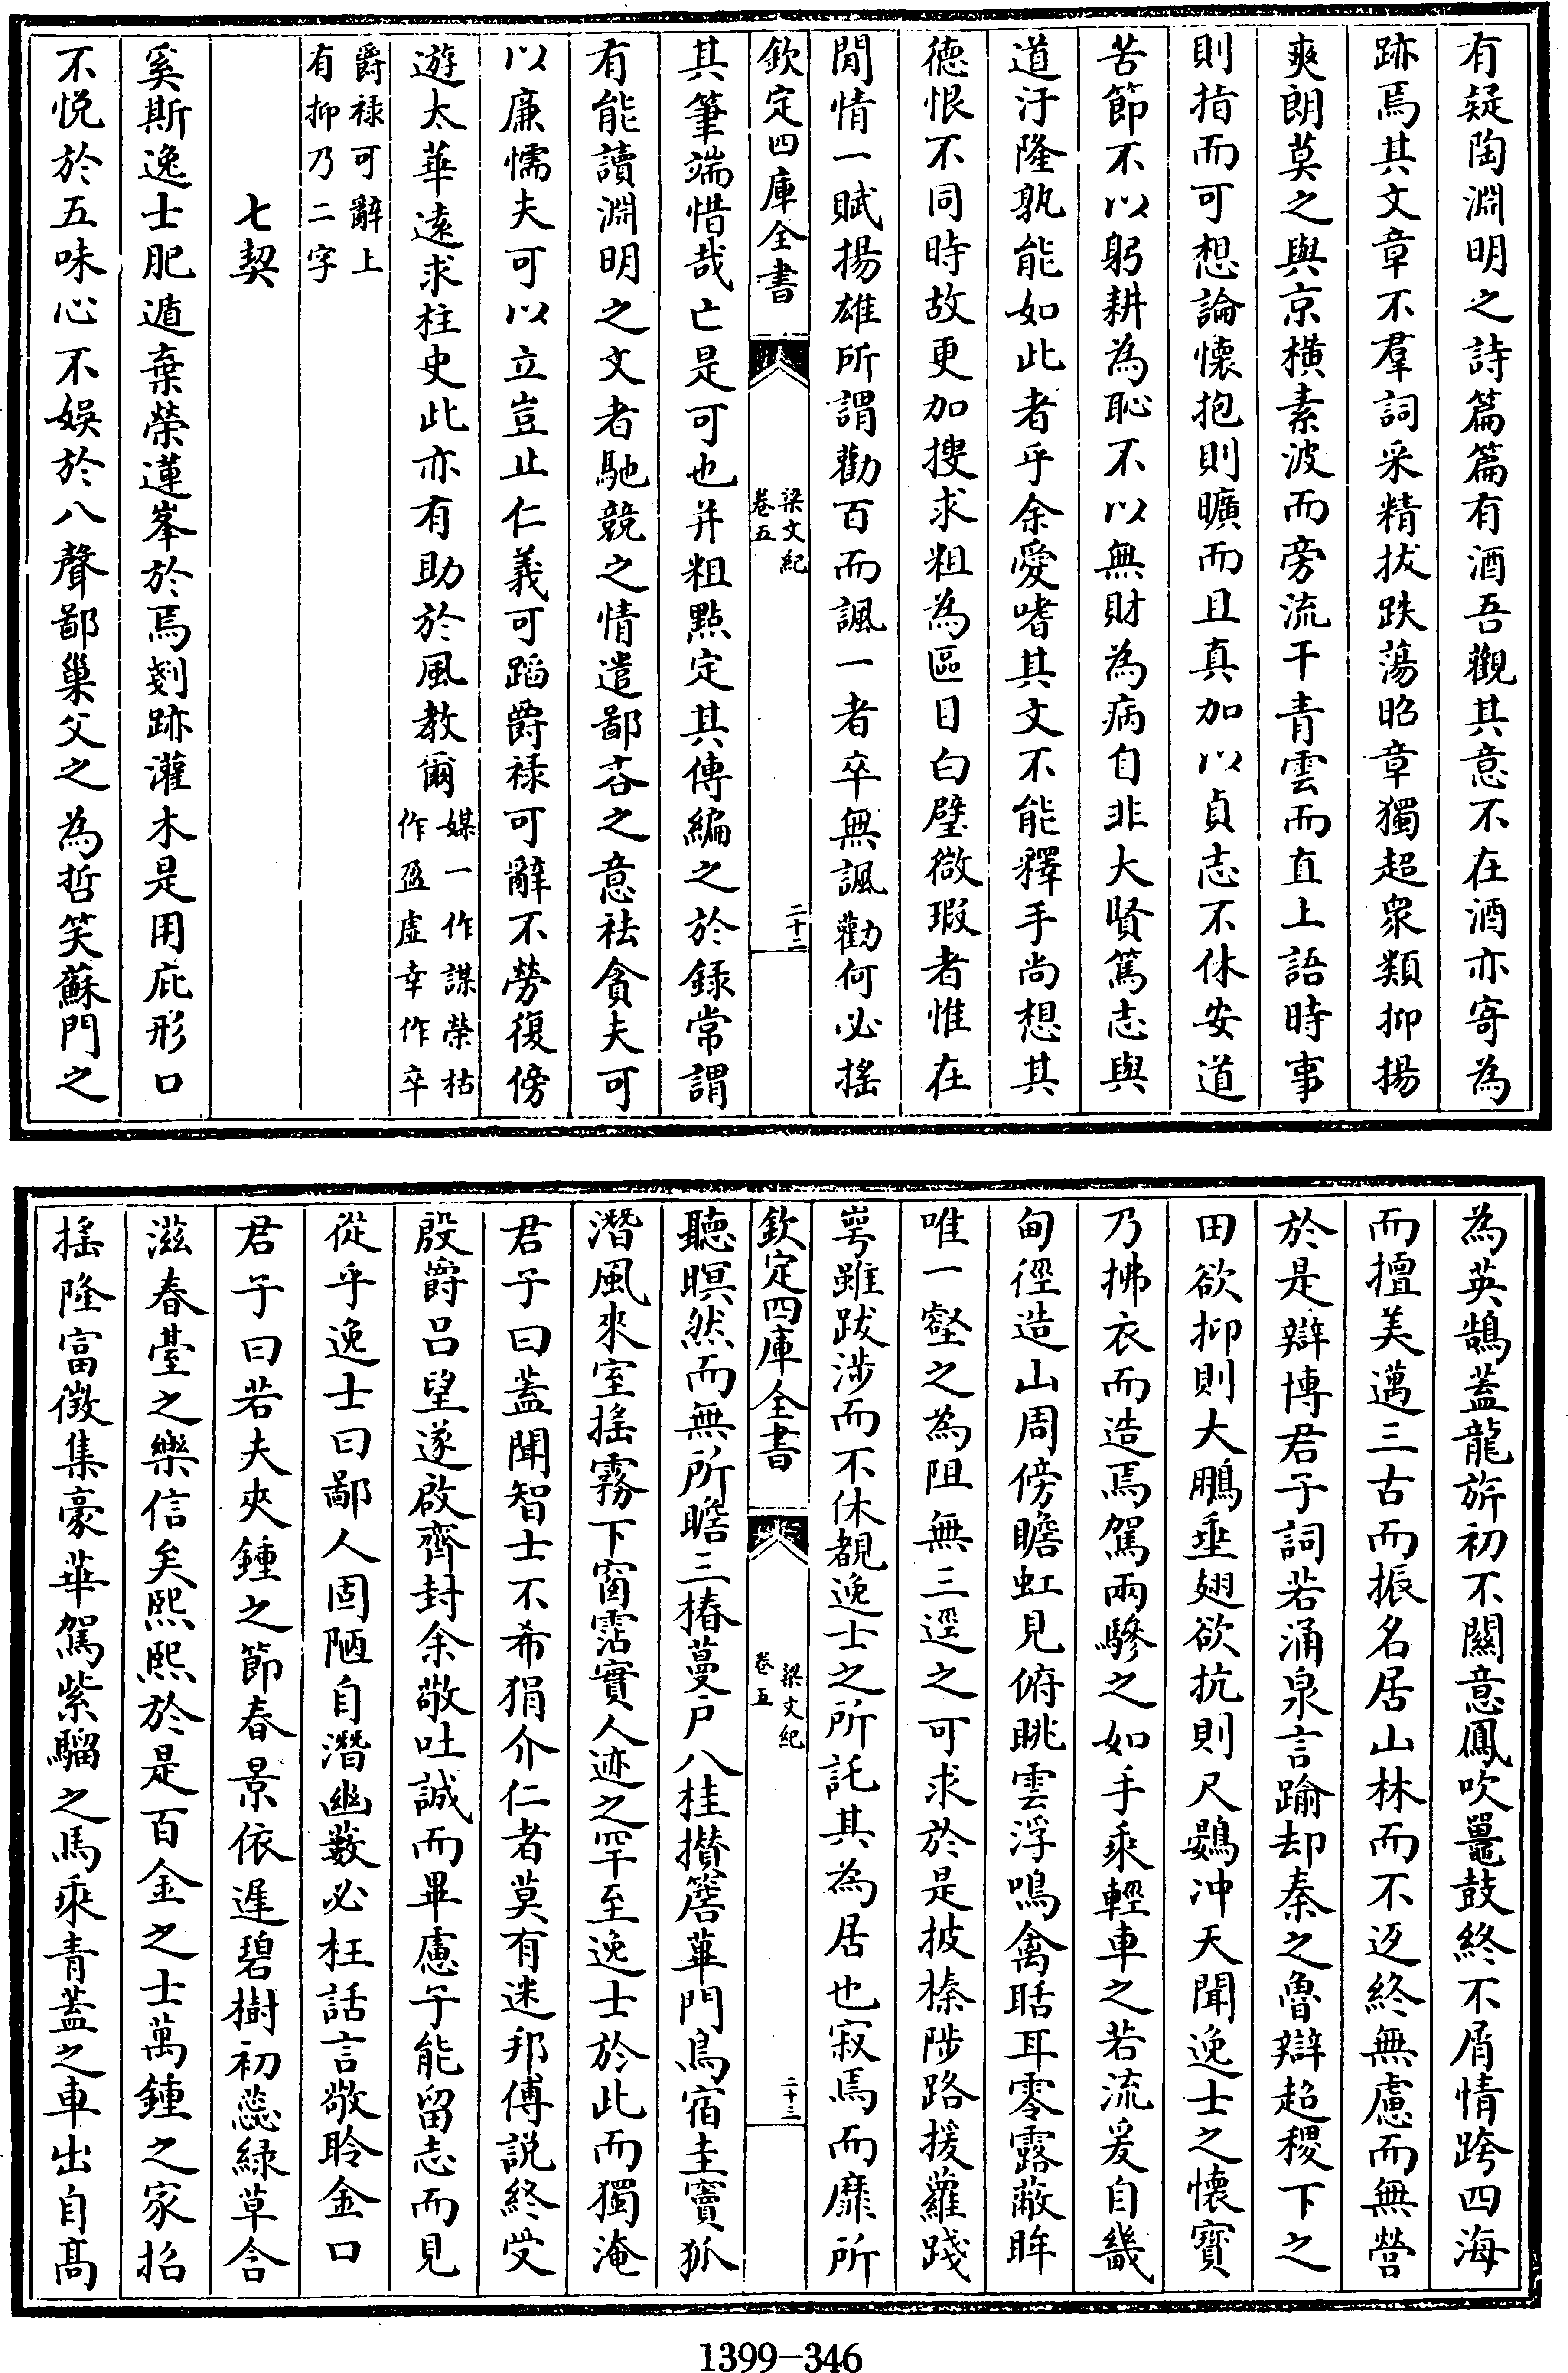 有疑陶淵明之詩篇篇有酒吾觀其意不在酒亦寄為
跡焉其文章不羣詞采精拔跌蕩昭章獨超衆類抑揚
爽朗莫之與京橫素波而旁流干青雲而直上語時事
則指而可想論懷抱則曠而且真加以貞志不休安道
苦節不以躬耕為恥不以無財為病自非大賢篤志與
道汙隆孰能如此者乎余愛嗜其文不能釋手尚想其
德恨不同時故更加搜求粗為區目白璧微瑕者惟在
閒情一賦揚雄所謂勸百而諷一者卒無諷勸何必搖
欽定四庫全書
梁文紀
卷五
二十二
其筆端惜哉亡是可也并粗點定其傳編之於録常謂
有能讀淵明之文者馳競之情遣鄙吝之意祛貪夫可
以廉懦夫可以立豈止仁義可蹈爵祿可辭不勞復傍
遊太華遠求柱史此亦有助於風教爾
媒一作謀榮枯
作盈虛幸作卒
爵祿可辭上
有抑乃二字
七契
奚斯逸士肥遁棄榮蓮峯於焉剗跡灌木是用庇形口
不悅於五味心不娛於八聲鄙巢父之為哲笑蘇門之
為英鵠蓋龍旂初不闗意鳳吹鼉鼓終不屑情跨四海
而擅美邁三古而振名居山林而不返終無慮而無營
於是辯博君子詞若涌泉言踰却秦之魯辯超稷下之
田欲抑則大鵬垂翅欲抗則尺鷃冲天聞逸士之懷寳
乃拂衣而造焉駕兩驂之如手乘輕車之若流爰自畿
甸徑造山周傍瞻虹見俯眺雲浮鳴禽聒耳零露蔽眸
唯一壑之為阻無三逕之可求於是披榛陟路援蘿踐
崿雖跋涉而不休覩逸士之所託其為居也寂焉而靡所
欽定四庫全書
梁文紀
卷五
二十三
聽暝然而無所瞻三椿蔓戶八桂攅簷蓽門鳥宿圭竇狐
潛風來室搖霧下窗霑實人迹之罕至逸士於此而獨淹
君子曰蓋聞智士不希狷介仁者莫有迷邦傅説終受
殷爵呂望遂啟齊封余敬吐誠而畢慮子能留志而見
從乎逸士曰鄙人固陋自潛幽藪必枉話言敬聆金口
君子曰若夫夾鍾之節春景依遲碧樹初蕊緑草含
滋春臺之樂信矣熙熙於是百金之士萬鍾之家招
搖隆富徵集豪華駕紫騮之馬乘青蓋之車出自髙
1399-346